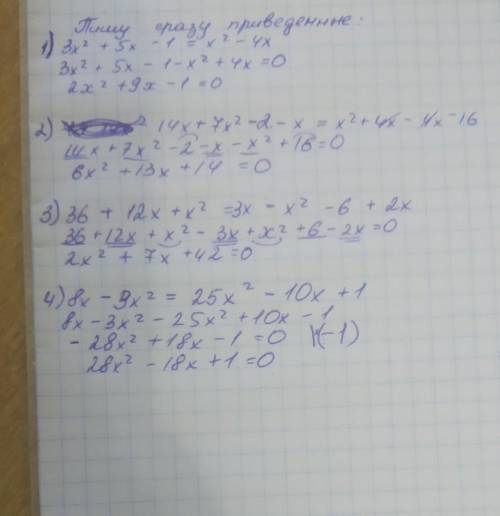 Пишу сразу приведенные:
1) 3x² + 5x - 1 = x² - 4x
3x² + 5x - 1 - x² + 4x = 0
2x² + 9x - 1 = 0
2) 14x + 7x² - 2 - x = x² + 4x - 4x - 16
14x + 7x² - 2 - x - x² + 16 = 0
6x² + 13x + 14 = 0
3) 36 + 12x + x² = 3x - x² - 6 + 2x
36 + 12x + x² - 3x + x² + 6 - 2x = 0
2x² + 7x + 42 = 0
4) 8x - 3x² = 25x² - 10x + 1
8x - 3x² - 25x² + 10x - 1
- 28x² + 18x - 1 = 0 |(-1)
28x² - 18x + 1 = 0